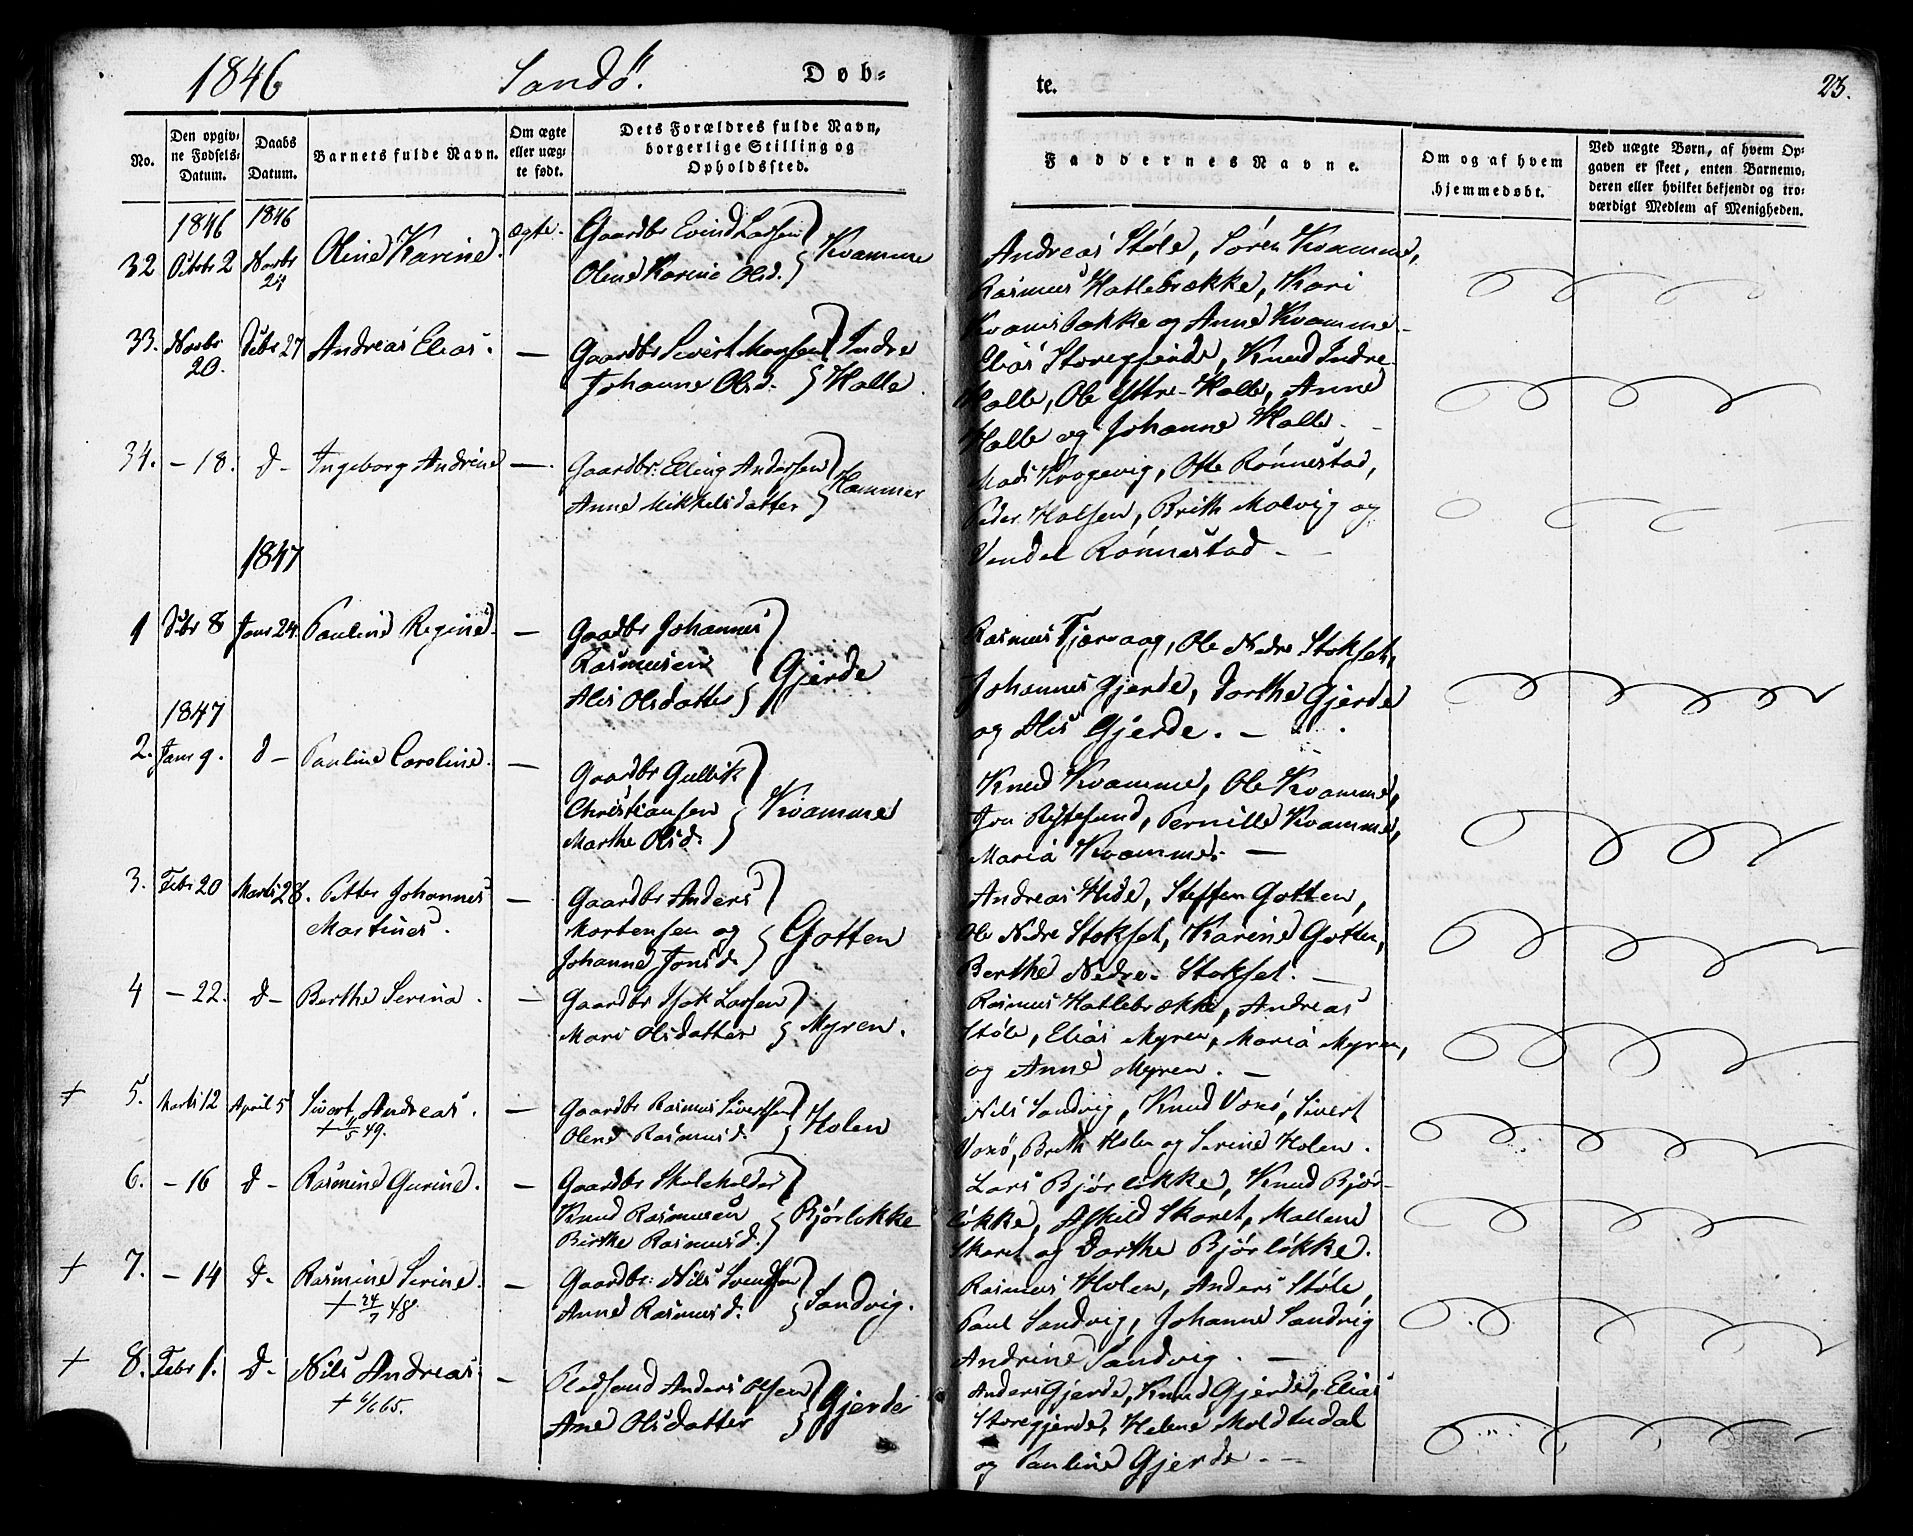 1846 Sandö. Døb-
te. 23.
No.
Den opgiv-
ne Fødsels-
Datum.
Daabs
Datum.
Barnets fulde Navn.
Om ægte
eller uæg-
te født.
Dets Forældres fulde Navn,
borgerlige Stilling og
Opholdssted.
Faddernes Navne.
Om og af hvem
hjemmedøbt.
Ved uægte Børn, af hvem Op-
gaven er skeet, enten Barnemo-
deren eller hvilket bekjendt og tro-
værdigt Medlem af Menigheden.
1846 1846
32 Octobr 2 Novbr Oline Karine. ægte. Gaardbr Evind Larsen
Oline Karine Olsd. Kvamme
Andreas Støle, Søren Kvamme,
Rasmus Hatlebrække, Kari
Kvamsbakke og Anne Kvamme
33. Novbr 20. Decbr 27 Andreas Elias. — Gaardbr Sivert Monsen Indre
Johanne Olsd. Halle.
Elias Storegjerde, Knud Indre
Halle, Ole Yttre-Halle, Anne
Halle og Johanne Halle.
34. – 18. d– Ingeborg Andrine —. Gaardbr. Elling Andersen
Anne Mikkelsdatter Hammer
Mads Kragevig, Otte Rönnestad,
Peder Halsen, Brith Malvig og
Vendel Rönnestad –
1847
1 Decbr 8 Janr 24. Pauline Regine. — Gaardbr Johannes
Rasmusen
Alis Olsdatter Gjerde
Rasmus Tjærvaag, Ole Nedre Stokset,
Johannes Gjerde, Dorthe Gjerde
og Alis Gjerde. –
1847
2. Janr 9. d– Pauline Caroline. — Gaardbr Gullik
Christiansen
Marthe Olsd. Kvamme
Knud Kvamme, Ole Kvamme,
Jon Røttesund, Pernille Kvamme,
Maria Kvamme. —
3. Febr 20 Marts 28. Petter Johannes — Gaardbr Anders
Martinus. Mortensen og
Johanne Jonsd. Gotten
Andreas Hide, Steffen Gotten,
Ole Nedre Stokset, Karine Gotten,
Berthe Nedre-Stokset. —
4 – 22. d– Berthe Serina. — Gaardbr Isak Larsen
Mari Olsdatter Myren.
Rasmus Hatlebrække, Andreas
Støle, Elias Myren, Maria Myren,
og Anne Myren. —
+ 5. Marts 12 April 5 Sivert Andreas. — Gaardbr Rasmus Sivertsen
Olene Rasmusd. Holen
Nils Sandvig, Knud Voxö, Sivert
Voxö, Brith Holen og Serine Holen.
6. – 16 d– Rasmine Gurine. — Gaardbr Skoleholder
Knud Rasmusen
Birthe Rasmusd. Bjørløkke
Lars Bjørløkke, Knud Bjør-
løkke, Askild Skaret, Mallene
Skaret og Dorthe Bjørløkke.
+ 7. – 14 d– Rasmine Serine. — Gaardbr. Nils Svendsen
+ 24/7 48. Anne Rasmusd. Sandvig.
Rasmus Holen, Anders Støle,
Paul Sandvig, Johanne Sandvig
Andrine Sandvig. —
+ 8. Febr 1. d– Nils Andreas. — Anders Olsen
Ane Olsdatter Gjerde
Anders Gjerde, Knud Gjerde, Elias
Storegjerde, Helene Moldtudal
og Pauline Gjerde. —